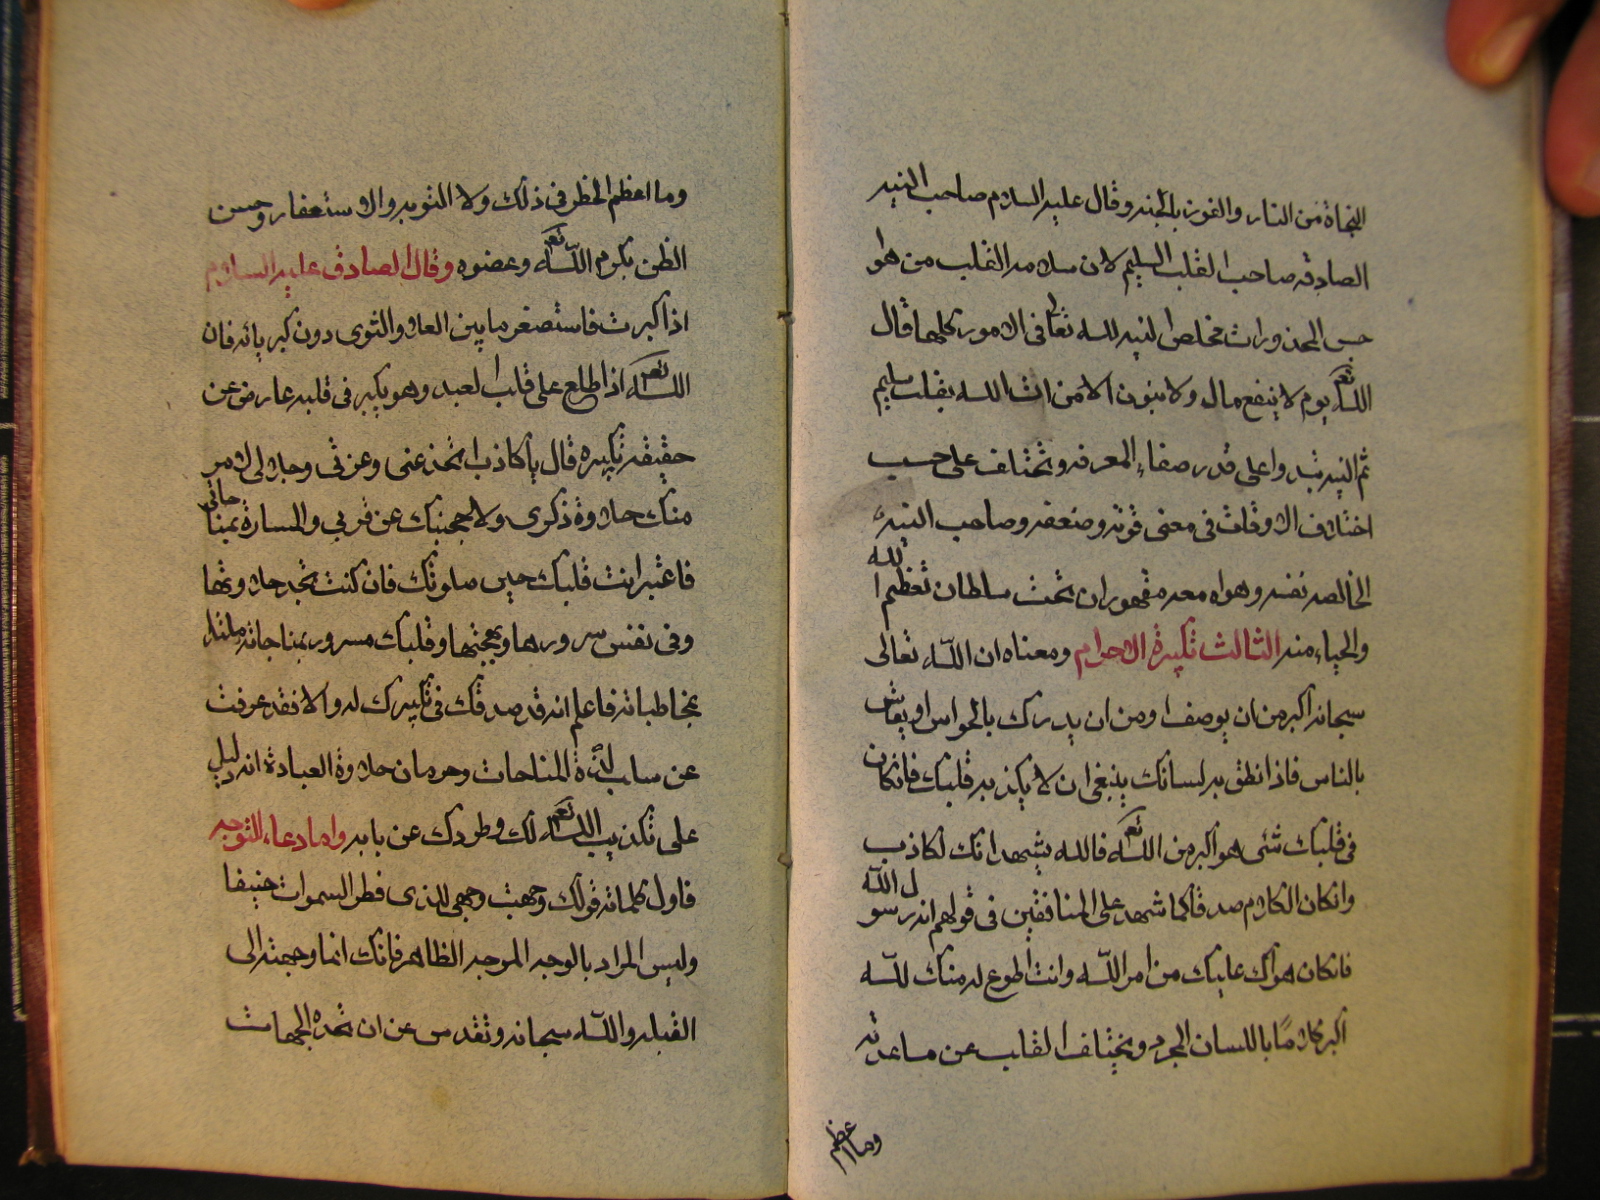 النجاة من النار والفوز بالجنه وقال عليه السلام صاحب النيه
الصادقه صاحب القلب السليم لان سلامه القلب من هوا
جس المحذورات مخلص النيه لله تعالى فى الامور كلها قال
الله تعم يوم لا ينفع مال ولا بنون الا من اتى الله بقلب سليم
ثم النيه تبدوا على قدر صفاء المعرفه وتختلف على حسب
اختلاف الاوقات فى معنى قوته وضعفه وصاحب النيه
الخالصه نفسه وهواه معه مقهوران تحت سلطان تعظيم الله
والحياء منه الثالث تكبيرة الاحرام ومعناه ان الله تعالى
سبحانه اكبر من ان يوصف او من ان يدرك بالحواس او يقاس
بالناس فاذا نطق به لسانك ينبغى ان لا يكذبه قلبك فانكان
فى قلبك شئى هو اكبر من الله تعم فالله يشهد انك لكاذب
وانكان الكلام صدقا كما شهد على المنافقين فى قولهم انه رسول الله
فانكان هواك عليك من امر الله وانت اطوع له منك لله
اكبر كلامًا باللسان المجرد ويختلف القلب عن مساعدته
وما اعظم
وما اعظم الخطر فى ذلك ولا التوبه والاستغفار وحسن
الظن بكرم الله تعم وعفوه وقال الصادق عليه السلام
اذا كبرت فاستصغر ما بين العلا والثرى دون كبريائه فان
الله تعم اذا اطلع على قلب العبد وهو يكبر فى قلبه عارض عن
حقيقه تكبيره قال يا كاذب اتخدعنى وعزتى وجلالى لاحرمـ
منك حلاوة ذكرى ولاحجبنك عن قربى والمسارة بمناجاتى
فاعتبر انت قلبك حين صلوتك فان كنت تجد حلاوتها
وفى نفس سرورها وبهجتها وقلبك مسرور بمناجاته ملتذ
بمخاطباته فاعلم انه قد صدقك فى تكبيرك له والا فقد عرفت
عن سلب لذة المناجات وحرمان حلاوة العبادة انه دليل
على تكذيب الله تعم لك وطردك عن بابه واما دعاء التوجه
فاول كلماته قولك وجهت وجهى للذى فطر السموات حنيفا
وليس المراد بالوجه الموجه الظاهر فانك انما وجهته الى
القبله والله سبحانه وتقدس عن ان تحده الجهات